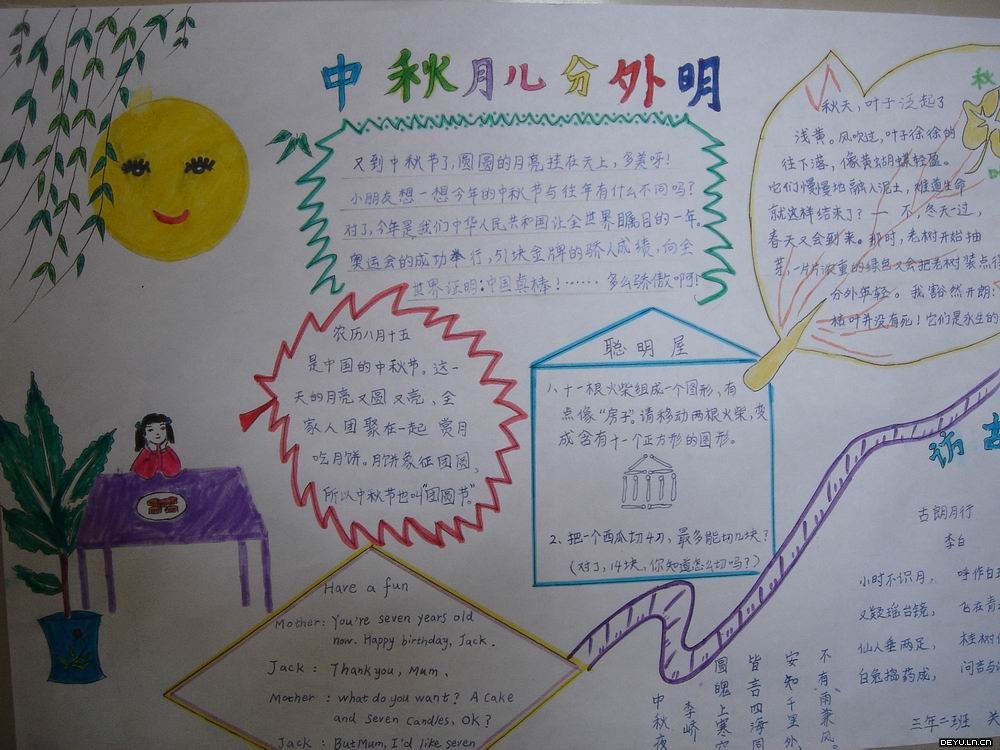 中秋月儿分外明
又到中秋节了,圆圆的月亮挂在天上,多美呀!
小朋友想一想今年的中秋节与往年有什么不同吗?
对了,今年是我们中华人民共和国让全世界瞩目的一年。
奥运会的成功举行,51块金牌的骄人成绩,向全
世界证明:中国真棒!……多么骄傲啊!
秋
秋天,叶子泛起了
浅黄。风吹过,叶子徐徐的
往下落,像黄蝴蝶轻盈。
它们慢慢地融入泥土,难道生命
就这样结束了?一不,冬天一过,
春天又会到来。那时,老树开始抽
芽,一片片浓重的绿色又会把老树装点得
分外年轻。我豁然开朗:
枯叶并没有死!它们是永生的
农历八月十五
是中国的中秋节。这一
天的月亮又圆又亮,全
家人团聚在一起赏月
吃月饼。月饼象征团圆,
所以中秋节也叫"团圆节"。
聪明屋
1、十一根火柴组成一个图形,有
点像"房子"。请移动两根火柴,变
成含有十一个正方形的图形。
2、把一个西瓜切4刀,最多能切几块?
(对了,14块,你知道怎么切吗?)
Have a fun
Mother: You're seven years old
now. Happy birthday, Jack.
Jack: Thank you, Mum.
Mother: what do you want? A cake
and seven candles, OK?
Jack: But Mum, I'd like seven
中秋夜
李峤
圆魄上寒空
皆言四海同
安知千里外
不有雨兼风
访古
古朗月行
李白
小时不识月,呼作白玉
又疑瑶台镜,飞在青
仙人垂两足,桂树
白兔捣药成,问言与
三年二班 关
DEYU.LN.CN